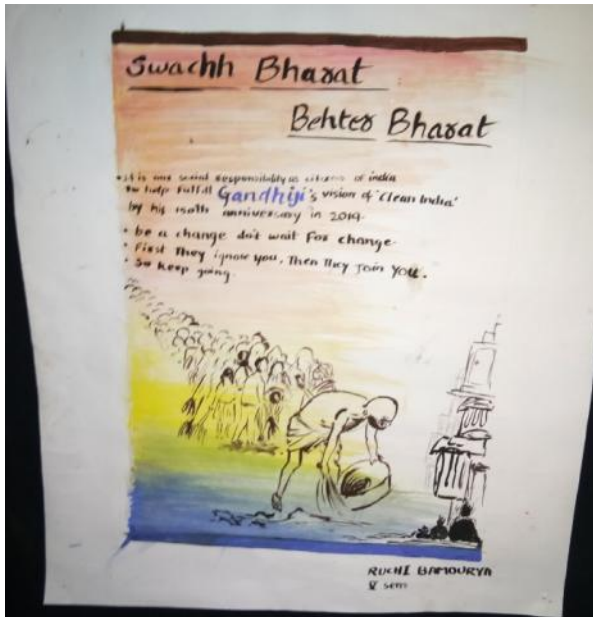 Swachh Bharat
Behter Bharat
• it is our social responsibility as citizens of india
to help fulfill Gandhiji's vision of 'Clean India'
by his 150th anniversary in 2019.
• be a change don't wait For change.
• First They ignore you, Then They join You.
• So keep going.
RUCHI BAMOURYA
V sem